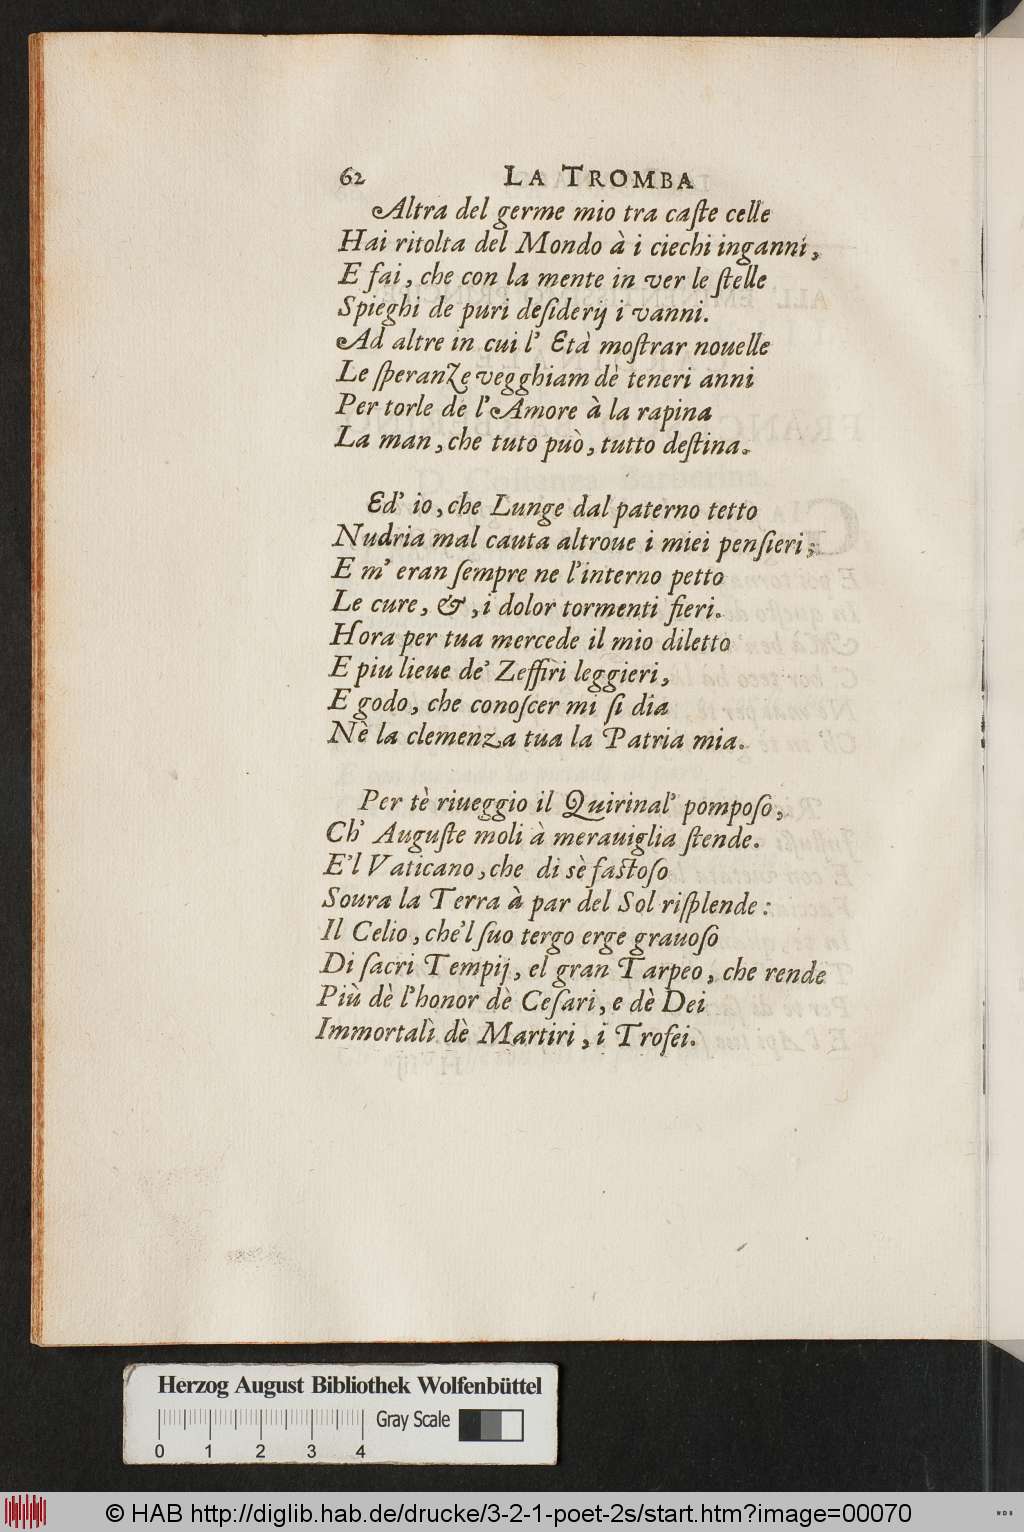 62 LA TROMBA
Altra del germe mio tra caſte celle
Hai ritolta del Mondo à i ciechi inganni,
E fai, che con la mente in ver le ſtelle
Spieghi de puri deſiderij i vanni.
Ad altre in cui l' Età moſtrar nouelle
Le ſperanze vegghiam dè teneri anni
Per torle de l'Amore à la rapina
La man, che tuto può, tutto deſtina.
Ed' io, che Lunge dal paterno tetto
Nudria mal cauta altroue i miei penſieri;
E m' eran ſempre ne l'interno petto
Le cure, &, i dolor tormenti fieri.
Hora per tua mercede il mio diletto
E piu lieue de' Zeffiri leggieri,
E godo, che conoſcer mi ſi dia
Nè la clemenza tua la Patria mia.
Per tè riueggio il Quirinal' pompoſo,
Ch' Auguſte moli à merauiglia ſtende.
E'l Vaticano, che di sè faſtoſo
Soura la Terra à par del Sol riſplende:
Il Celio, che'l ſuo tergo erge grauoſo
Di ſacri Tempij, el gran Tarpeo, che rende
Più dè l'honor dè Ceſari, e dè Dei
Immortalì dè Martiri, i Trofei.
Herzog August Bibliothek Wolfenbüttel
Gray Scale
0 1 2 3 4
© HAB http://diglib.hab.de/drucke/3-2-1-poet-2s/start.htm?image=00070